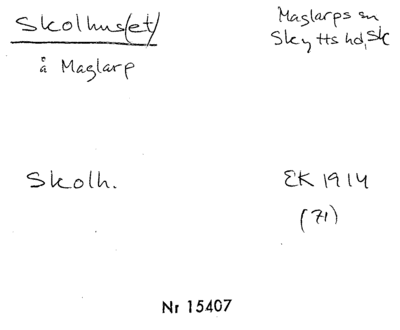 Skolhus(et)
Maglarps sn
Skytts hd, Sk
å Maglarp
Skolh.
EK 1914
(71)
Nr 15407